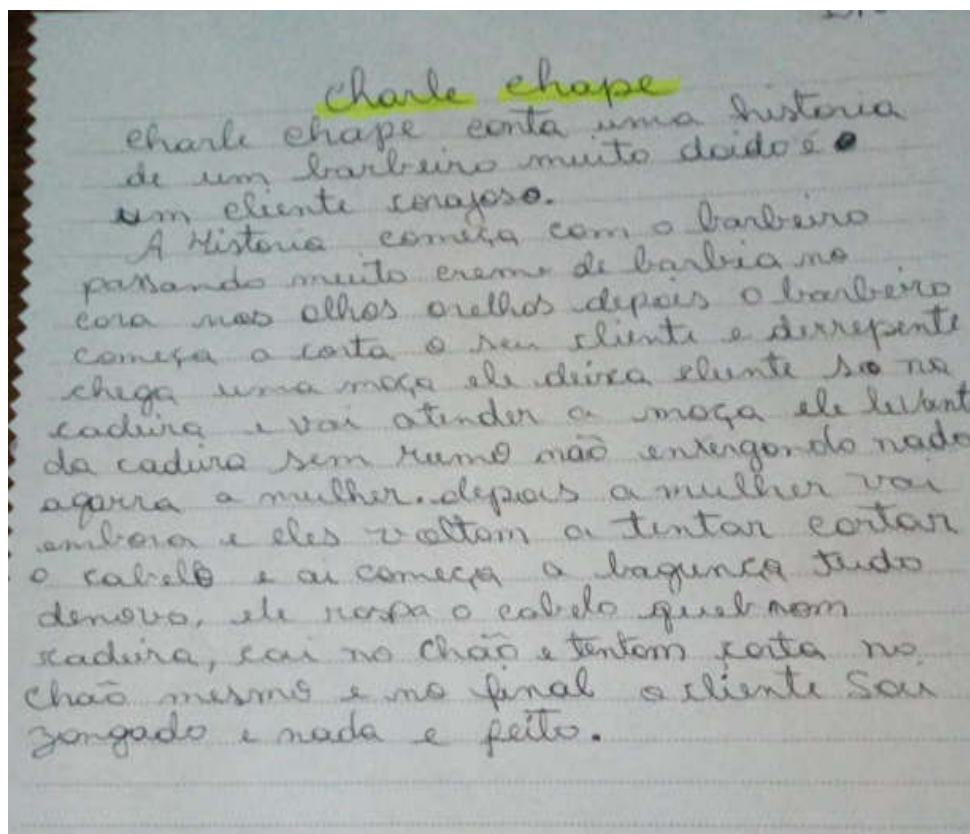 charle chape
charle chape conta uma historia
de um barbeiro muito doido é o
um cliente corajoso.
A Historia começa com o barbeiro
passando muito creme de barbia no
cora nos olhos orelhos depois o barbeiro
começa a corta o seu cliente e derrepente
chega uma moça ele deixa cliente so na
cadeira e vai atender a moça ele levant
da cadeira sem rumo não enxergondo nada
agarra a mulher. depois a mulher vai
embora e eles voltam a tentar cortar
o cabelo e ai começa a bagunça tudo
denovo, ele raspa o cabelo quebram
cadeira, cai no chão e tentam corta no
chão mesmo e no final o cliente sai
zangado e nada e feito.